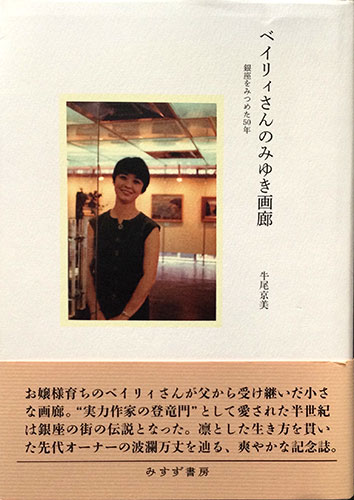 ベイリィさんのみゆき画廊
銀座をみつめた50年
牛尾京美
お嬢様育ちのベイリィさんが父から受け継いだ小さ
な画廊。“実力作家の登竜門”として愛された半世紀
は銀座の街の伝説となった。凛とした生き方を貫い
た先代オーナーの波瀾万丈を辿る、爽やかな記念誌。
みすず書房